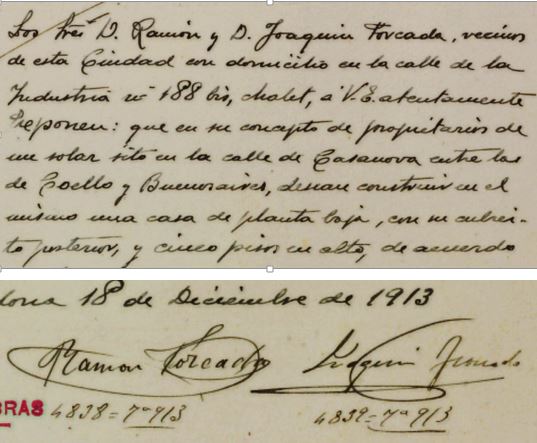 Los Sres D. Ramón y D. Joaquin Forcada, vecinos
de esta Ciudad con domicilio en la calle de la
Industria nº 188 bis, chalet, á V.E. atentamente
exponen: que en su concepto de propietarios de
un solar sito en la calle de Casanova entre las
de Coello y Buenosaires, desean construir en el
mismo una casa de planta baja, con su cubier-
to posterior, y cinco pisos en alto, de acuerdo
lona 18 de Diciembre de 1913
Ramon Forcada Joaquin Forcada
BRAS 4838=7ª 913 4839=7ª 913